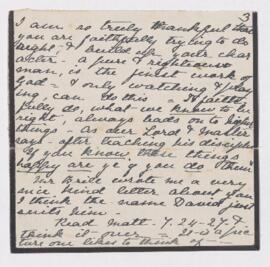 3
I am so truly thankful that
you are faithfully trying to do
right, & build up your char
acter - a pure & righteous
man, is the finest work of
God - & only watching & pray
ing can do this - & faith
fully do, what we know to be
right, always leads on to higher
things - As our Lord & Master
says - after teaching his disciples
"If you know these things
happy are ye if you do them"
wrote me a very
nice kind letter about you
I think the name David just
suits him -
Read Matt. 7. 24-27 &
think it over - is a pic
ture one likes to think of -